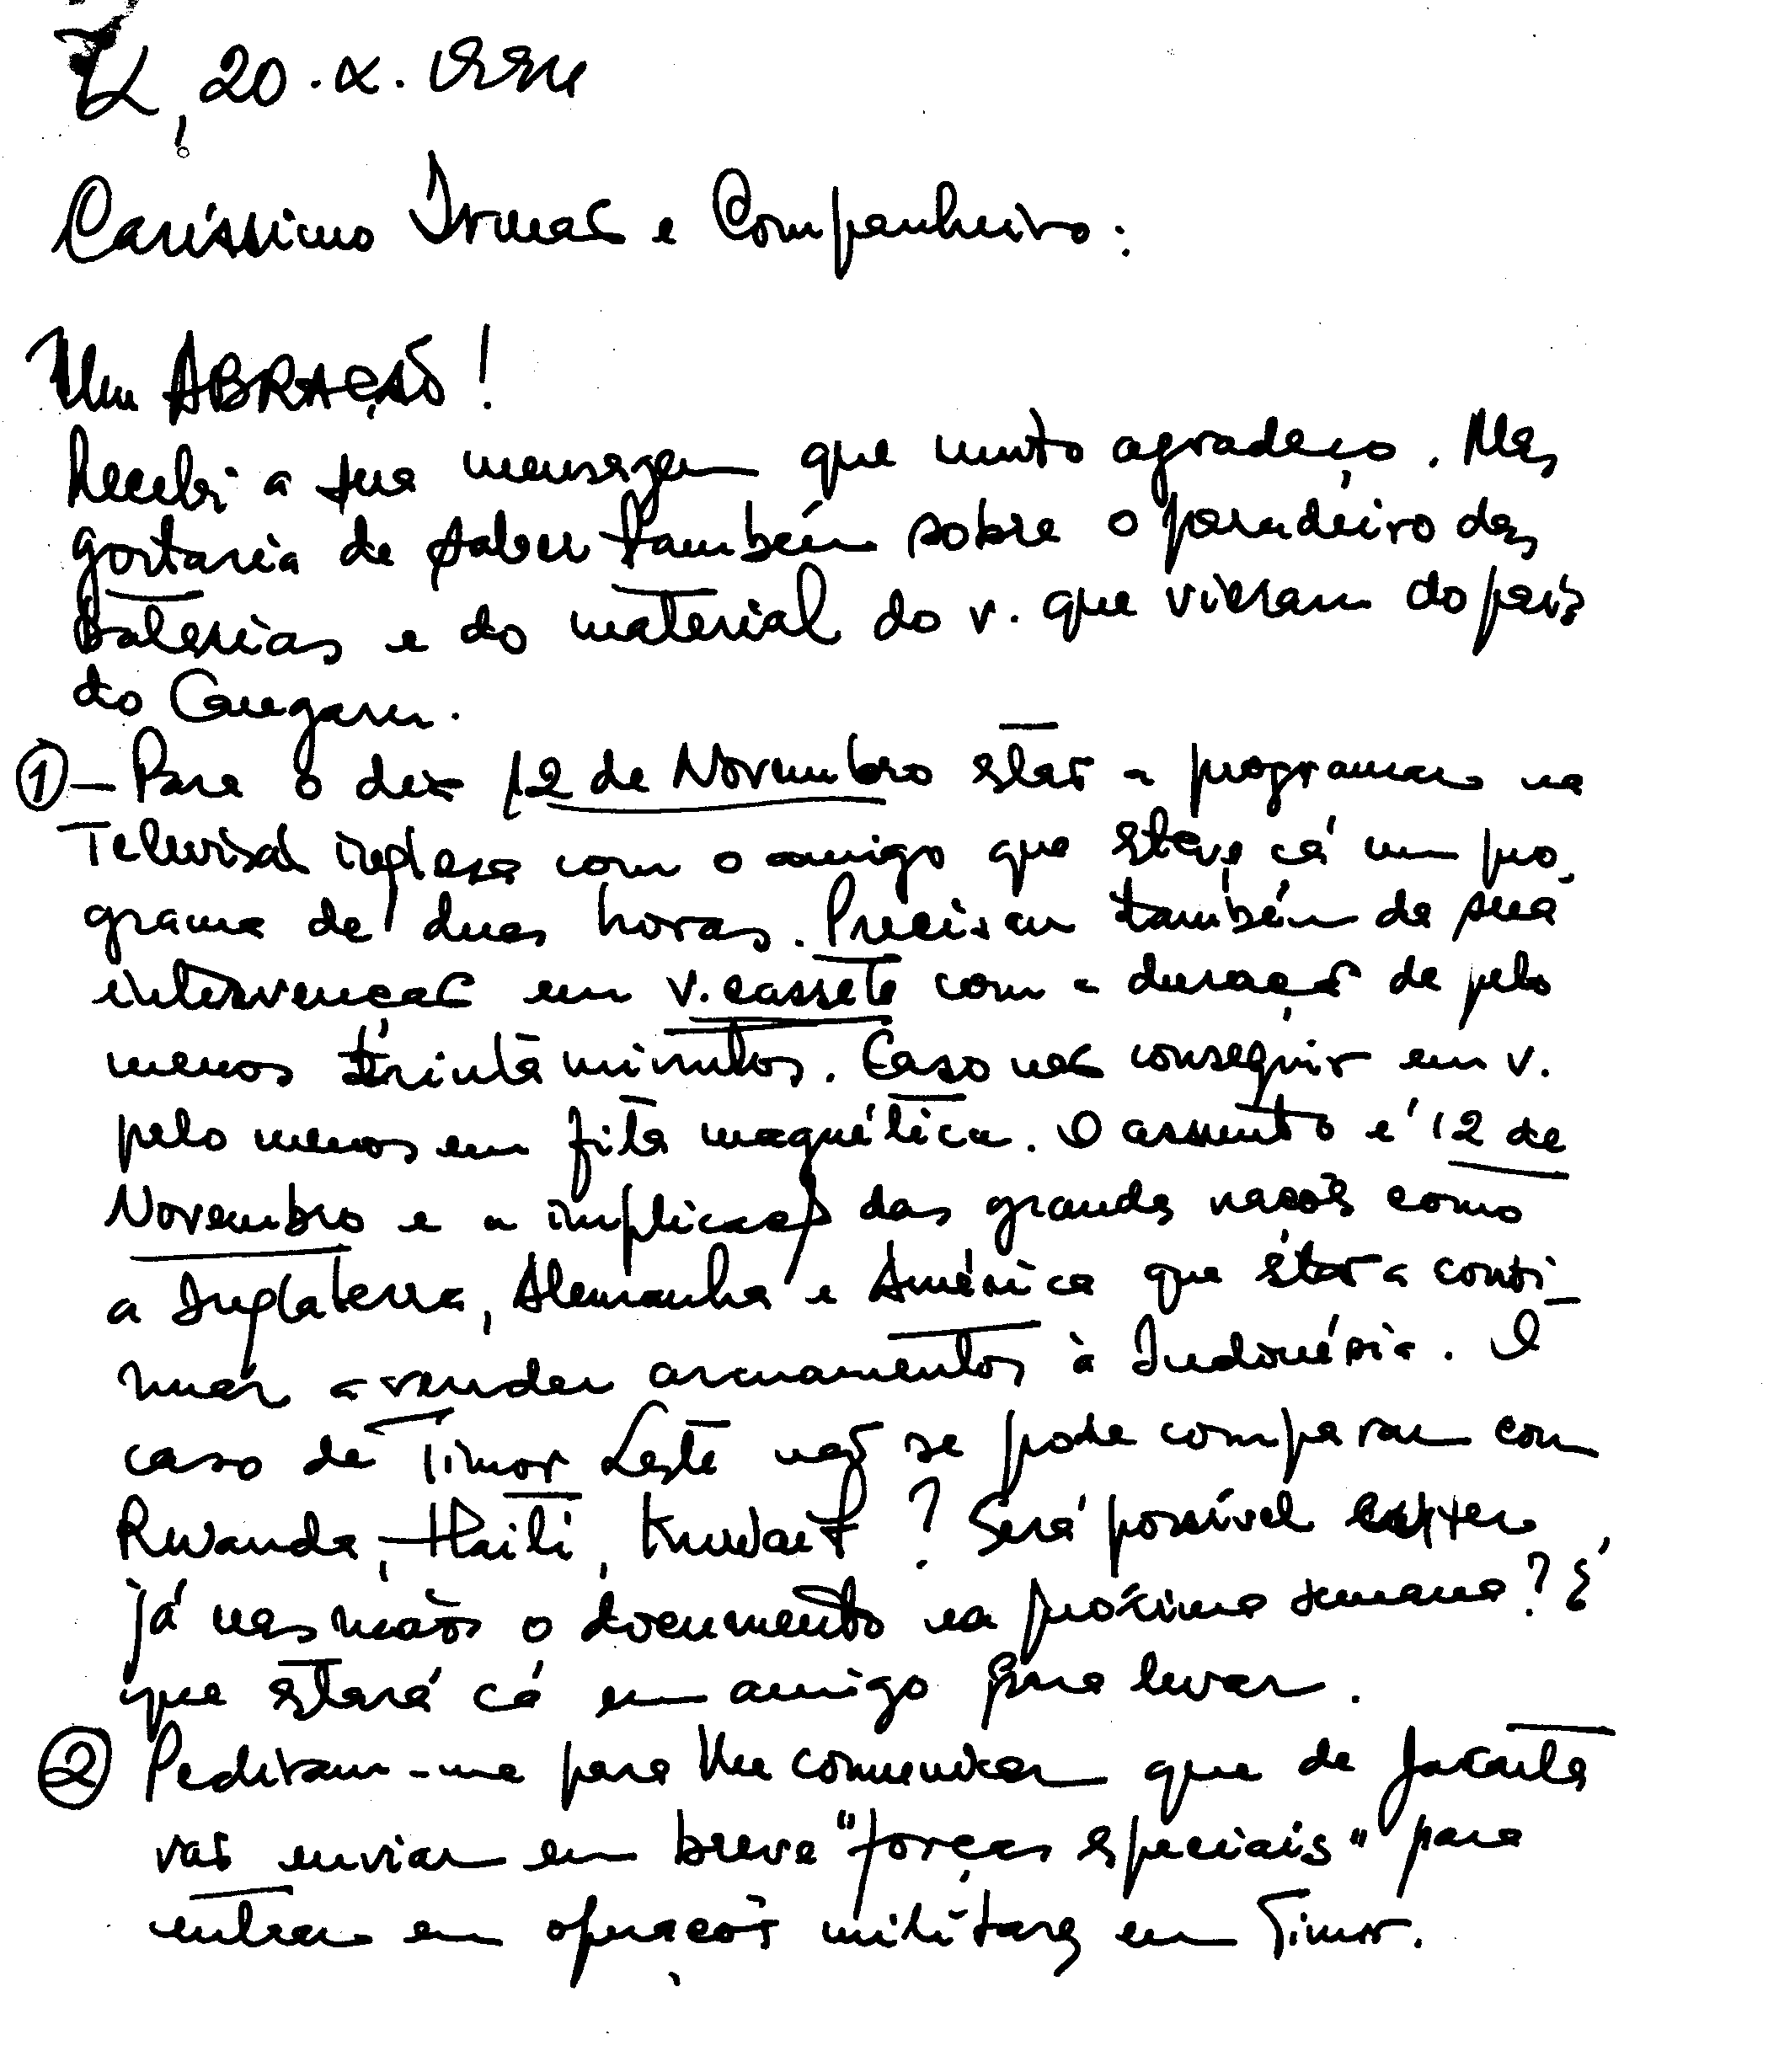 , 20.X.1994
Caríssimo Irmão e Companheiro:
Um ABRAÇÃO!
Recebi a sua mensagem que muito agradeço. Mas
gostaria de saber também sobre o paradeiro das
Baterias e do material do v. que vieram do país
do Canguru.
① – Para o dia 12 de Novembro estão a programar na
Televisão inglesa com o amigo que esteve cá um pro-
grama de duas horas. Precisam também da sua
intervenção em v. cassete com a duração de pelo
menos trinta minutos. Caso não conseguir em v.
pelo menos em fita magnética. O assunto é 12 de
Novembro e a implicação das grandes nações como
a Inglaterra, Alemanha e América que estão a conti-
nuar a vender armamentos à Indonésia. O
caso de Timor Leste não se pode comparar com
Rwanda, Haiti, Kuwait? Será possível
já nas mãos o documento na próxima semana? É
que estará cá um amigo para levar.
② Pediram-me para lhe comunicar que de Jacarta
vão enviar em breve "forças especiais" para
entrar em operações militares em Timor.